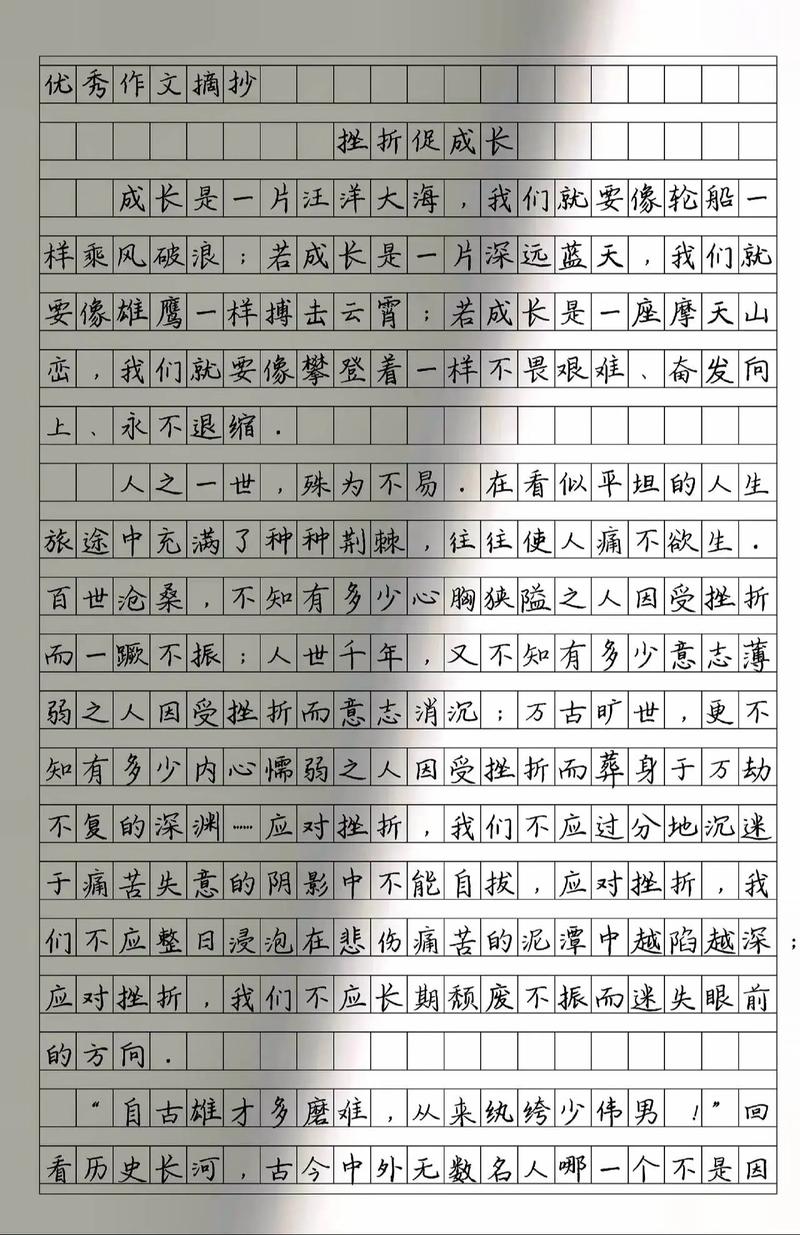 优秀作文摘抄
挫折促成长
成长是一片汪洋大海，我们就要像轮船一
样乘风破浪；若成长是一片深远蓝天，我们就
要像雄鹰一样搏击云霄；若成长是一座摩天山
峦，我们就要像攀登着一样不畏艰难、奋发向
上、永不退缩．
人之一世，殊为不易．在看似平坦的人生
旅途中充满了种种荆棘，往往使人痛不欲生．
百世沧桑，不知有多少心胸狭隘之人因受挫折
而一蹶不振；人世千年，又不知有多少意志薄
弱之人因受挫折而意志消沉；万古旷世，更不
知有多少内心懦弱之人因受挫折而葬身于万劫
不复的深渊……应对挫折，我们不应过分地沉迷
于痛苦失意的阴影中不能自拔，应对挫折，我
们不应整日浸泡在悲伤痛苦的泥潭中越陷越深；
应对挫折，我们不应长期颓废不振而迷失眼前
的方向．
“自古雄才多磨难，从来纨绔少伟男！”回
看历史长河，古今中外无数名人哪一个不是因